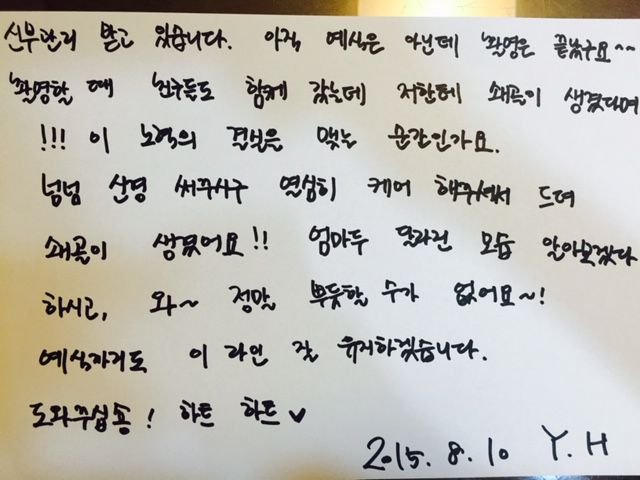 신부관리 받고 있습니다. 아직 예식은 아닌데 촬영은 끝났구요~~
촬영할 때 친구들도 함께 갔는데 저한테 쇄골이 생겼다며
!!! 이 노력의 결실을 맺는 순간인가요.
넘넘 신경 써주시구 열심히 케어 해주셔서 드뎌
쇄골이 생겼어요!! 엄마두 달라진 모습 알아보겠다
하시고, 와~ 정말 뿌듯할 수가 없어요~!
예식까지도 이 라인 잘 유지하겠습니다.
도와주십숑! 하트 하트 ♥
2015. 8. 10 Y. H